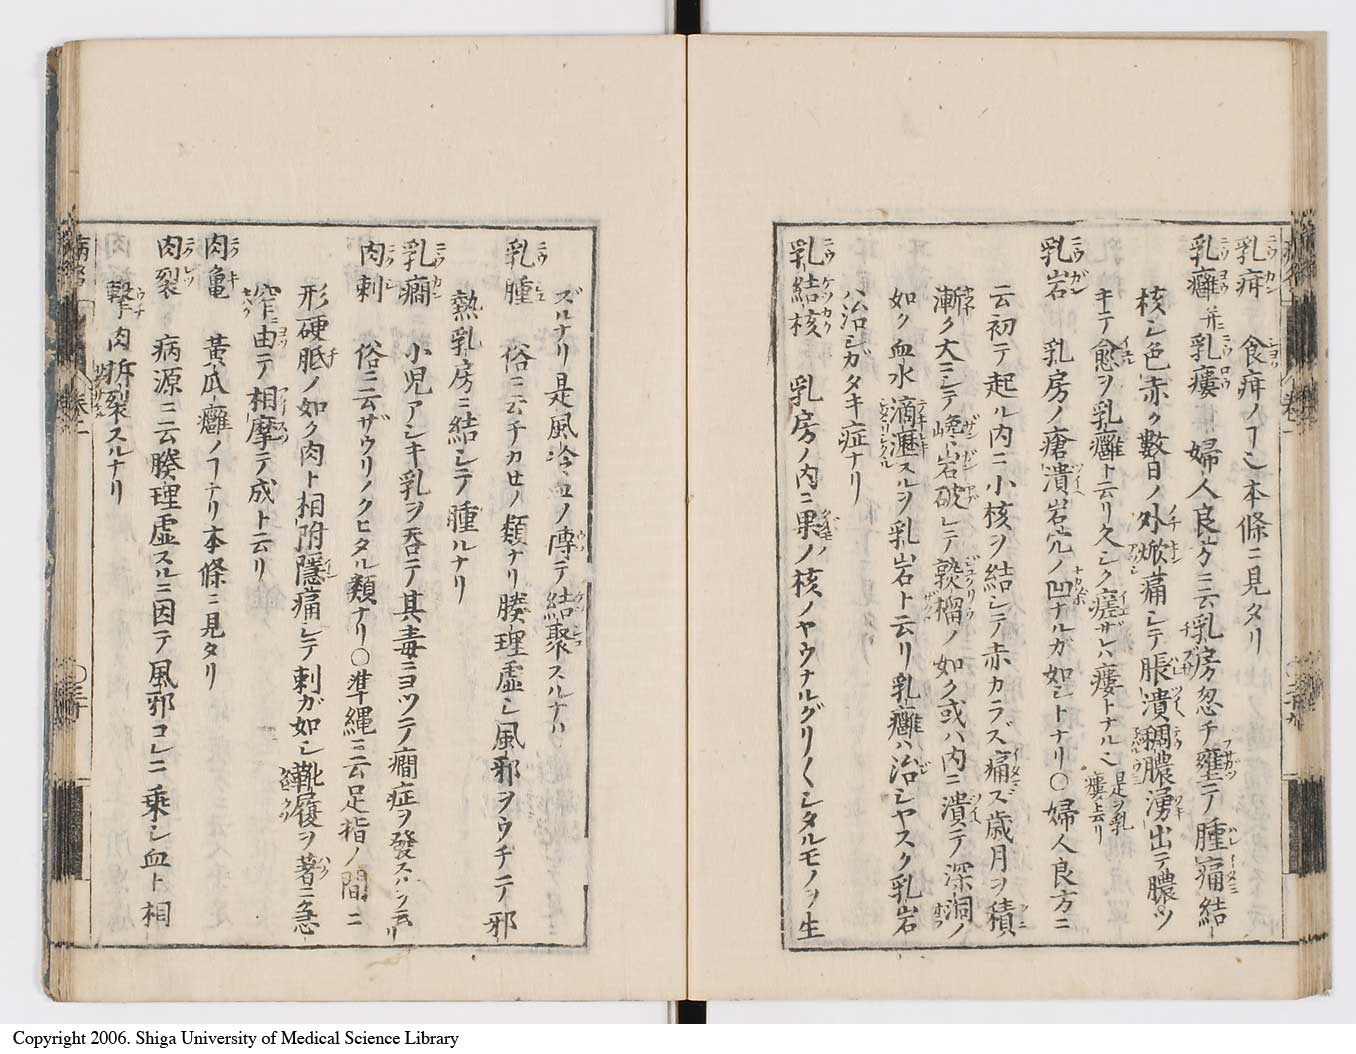 乳疳 食疳ノヿ也本條ニ見タリ
乳癰并乳瘻 婦人良方ニ云乳房忽チ壅テ腫痛結
核シ色赤ク數日ノ外焮痛シテ脹潰稠膿湧出テ膿ツ
キテ愈ヲ乳癰ト云リ久シク瘥ザレハ瘻トナル也是ヲ乳瘻ト云リ
乳岩 乳房ノ瘡潰岩穴ノ凹ナルガ如シトナリ○婦人良方ニ
云初テ起ル内ニ小核ヲ結シテ赤カラズ痛ス歳月ヲ積
漸ク大ニシテ巉岩破レテ熟榴ノ如ク或ハ内ニ潰テ深洞ノ
如ク血水滴瀝スルヲ乳岩ト云リ乳癰ハ治シヤスク乳岩
ハ治シガタキ症ナリ
乳結核 乳房ノ内ニ果ノ核ノヤウナルグリ〱シタルモノヲ生
ズルナリ是風冷血ノ慱テ結聚スルナリ
乳腫 俗ニ云チカセノ類ナリ腠理虚シ風邪ヲウチニテ邪
熱乳房ニ結シテ腫ルナリ
乳癇 小児アシキ乳ヲ吞テ其毒ニヨツテ癇症ヲ發スルヲ云リ
肉刺 俗ニ云ザウリノクヒタル類ナリ○準縄ニ云足指ノ間ニ
形硬胝ノ如ク肉ト相附隱痛シテ刺ガ如シ靴履ヲ著ニ急
窄ニ由テ相摩テ成ト云リ
肉龜 黃瓜癰ノヿナリ本條ニ見タリ
肉裂 病源ニ云腠理虚スルニ因テ風邪コレニ乘シ血ト相
擊肉拆裂スルナリ
Copyright 2006. Shiga University of Medical Science Library